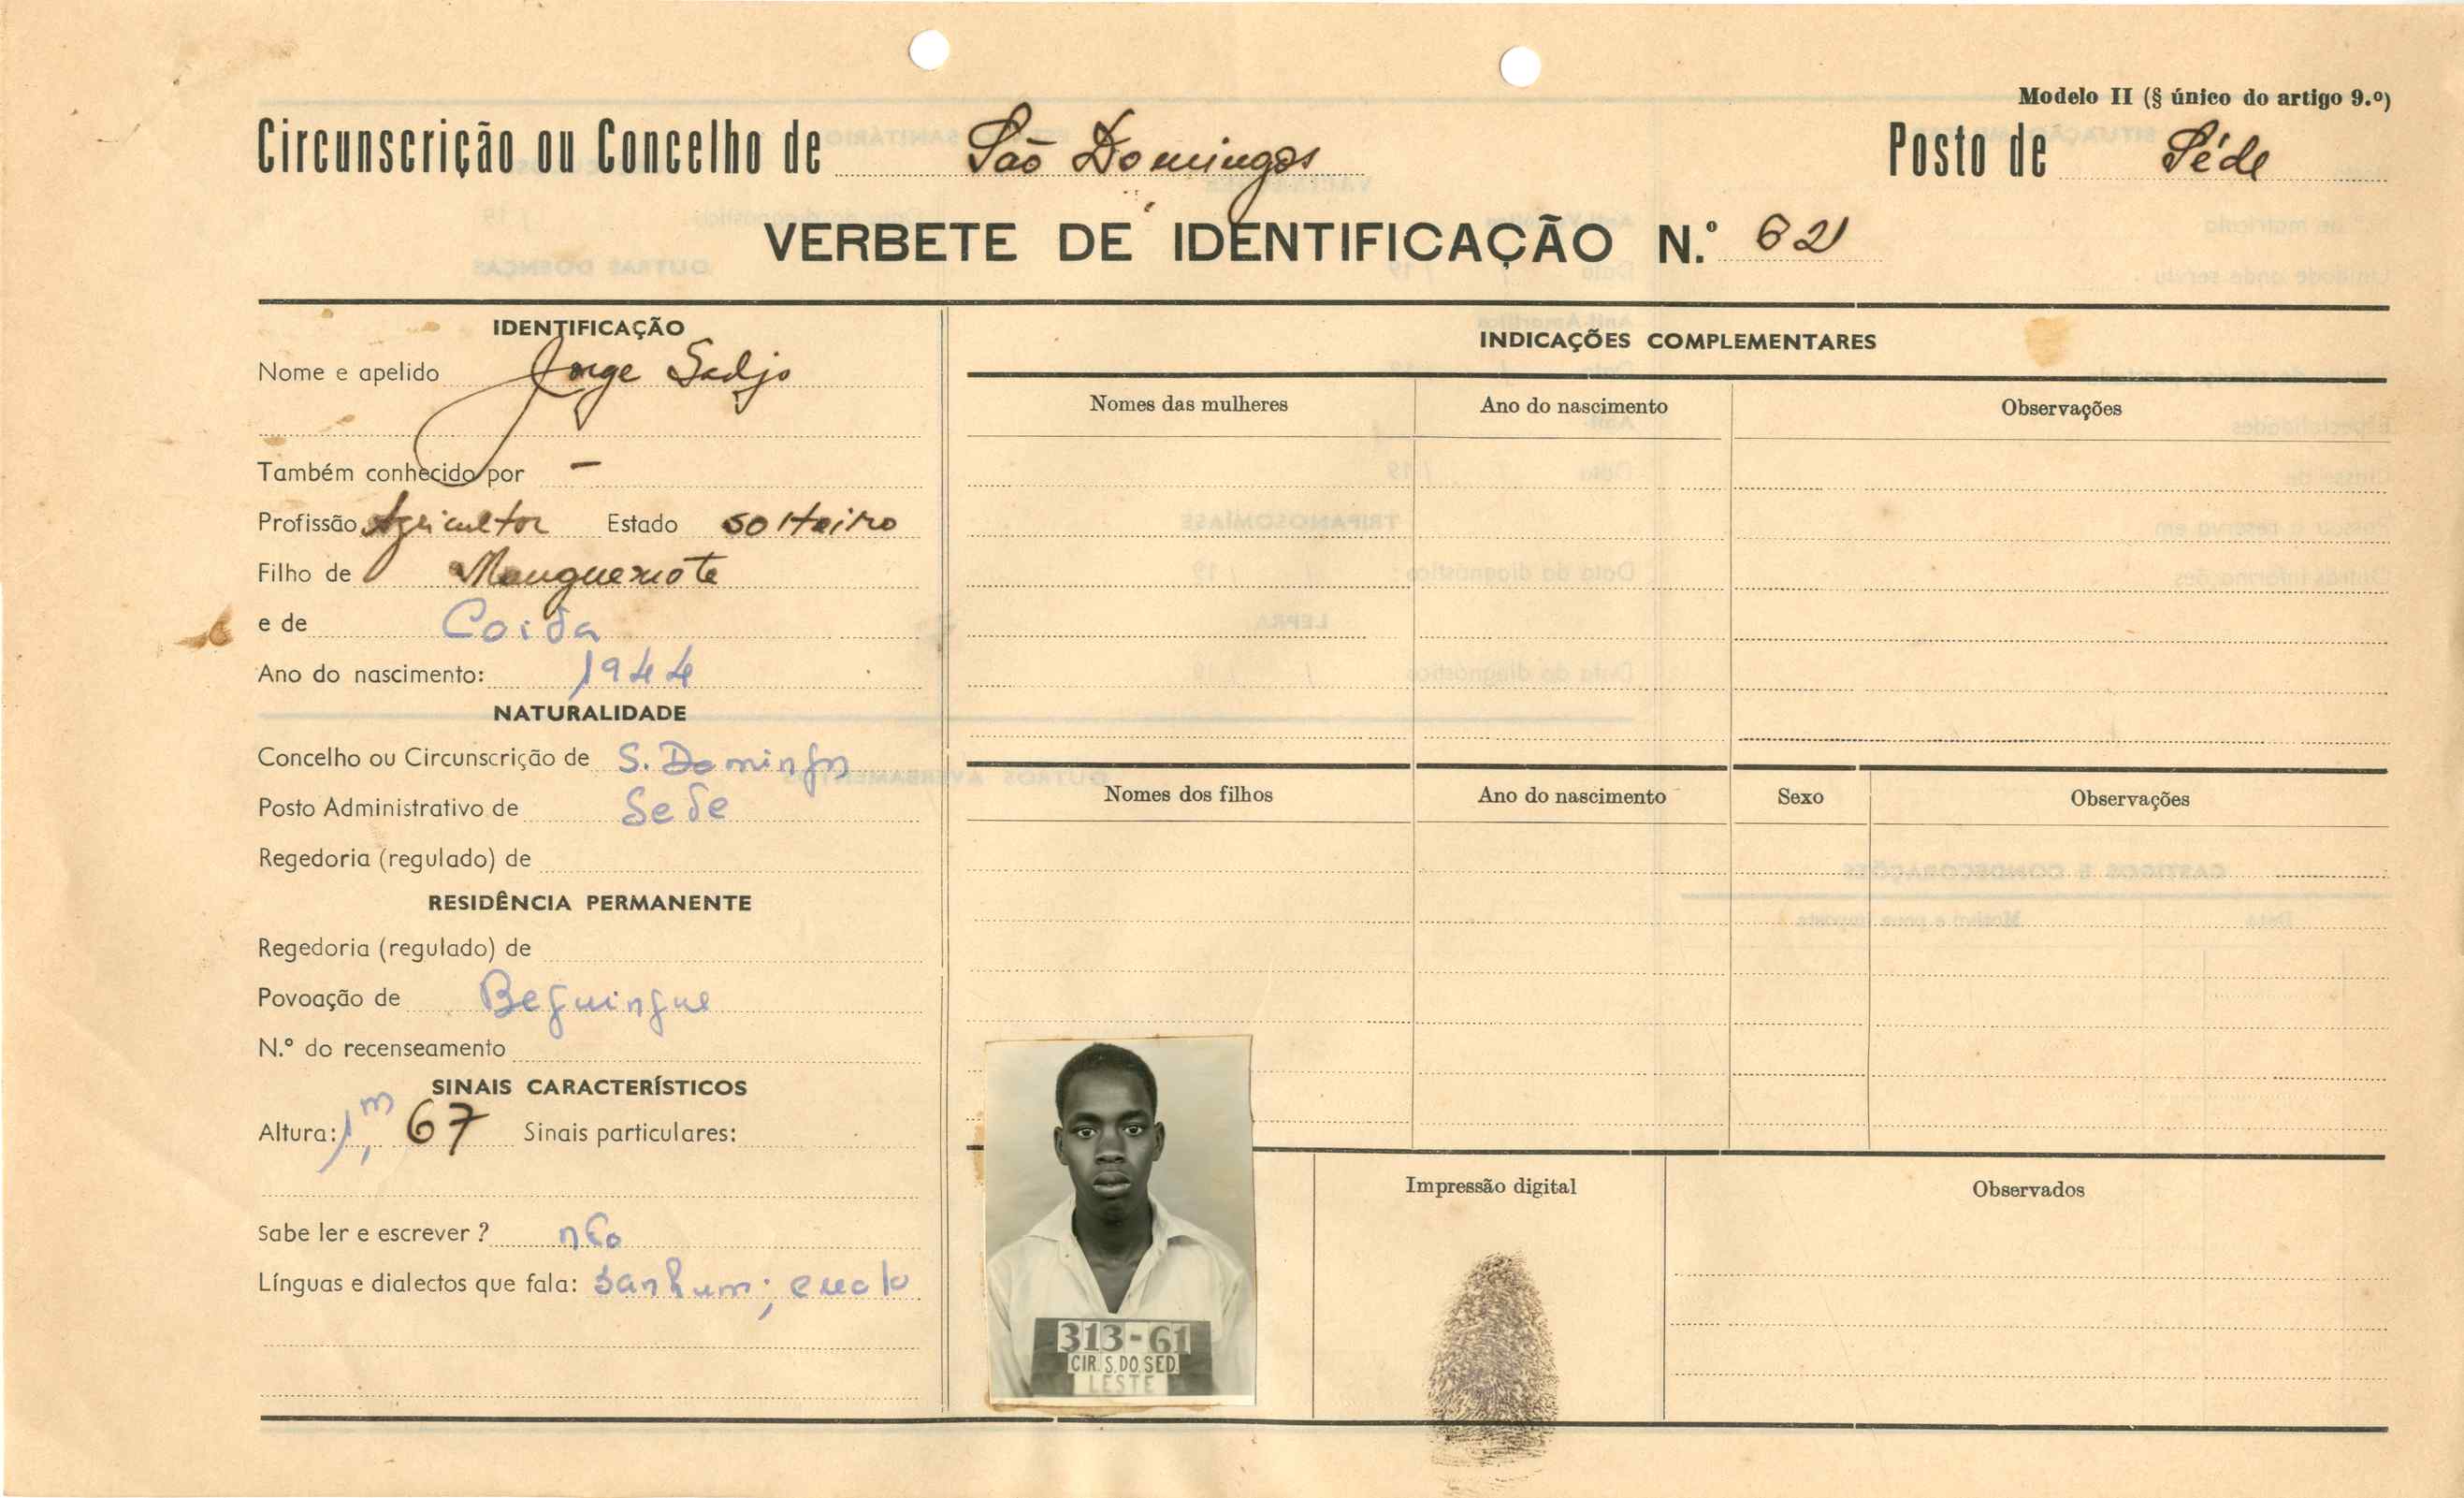 Modelo II (§ único do artigo 9.º)
Circunscrição ou Concelho de São Domingos Posto de Séde
VERBETE DE IDENTIFICAÇÃO N.º 62
IDENTIFICAÇÃO
Nome e apelido Jorge Sadjo
Também conhecido por —
Profissão Agricultor Estado solteiro
Filho de
e de Coida
Ano do nascimento: 1944
NATURALIDADE
Concelho ou Circunscrição de S. Domingos
Posto Administrativo de Sede
Regedoria (regulado) de
RESIDÊNCIA PERMANENTE
Regedoria (regulado) de
Povoação de Beguingue
N.º do recenseamento
SINAIS CARACTERÍSTICOS
Altura: 1,m 67 Sinais particulares:
Sabe ler e escrever ? não
Línguas e dialectos que fala:
INDICAÇÕES COMPLEMENTARES
Nomes das mulheres Ano do nascimento Observações
Nomes dos filhos Ano do nascimento Sexo Observações
313-61
CIR. S. DO SED.
LESTE
Impressão digital
Observados